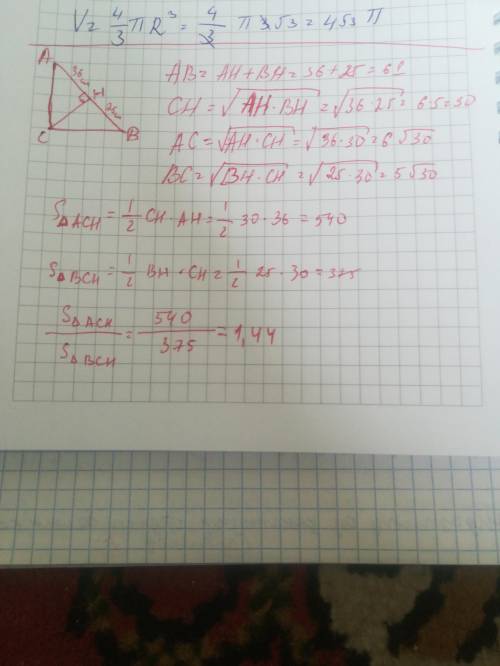 V = 4/3 πR³ = 4/3 π 3√3 = 4√3 π
A
36 см
H
25 см
C
B
AB = AH + BH = 36 + 25 = 61
CH = √(AH · BH) = √(36 · 25) = 6 · 5 = 30
AC = √(AH · CH) = √(36 · 30) = 6√30
BC = √(BH · CH) = √(25 · 30) = 5√30
S△ACH = 1/2 CH · AH = 1/2 · 30 · 36 = 540
S△BCH = 1/2 BH · CH = 1/2 · 25 · 30 = 375
S△ACH / S△BCH = 540 / 375 = 1,44